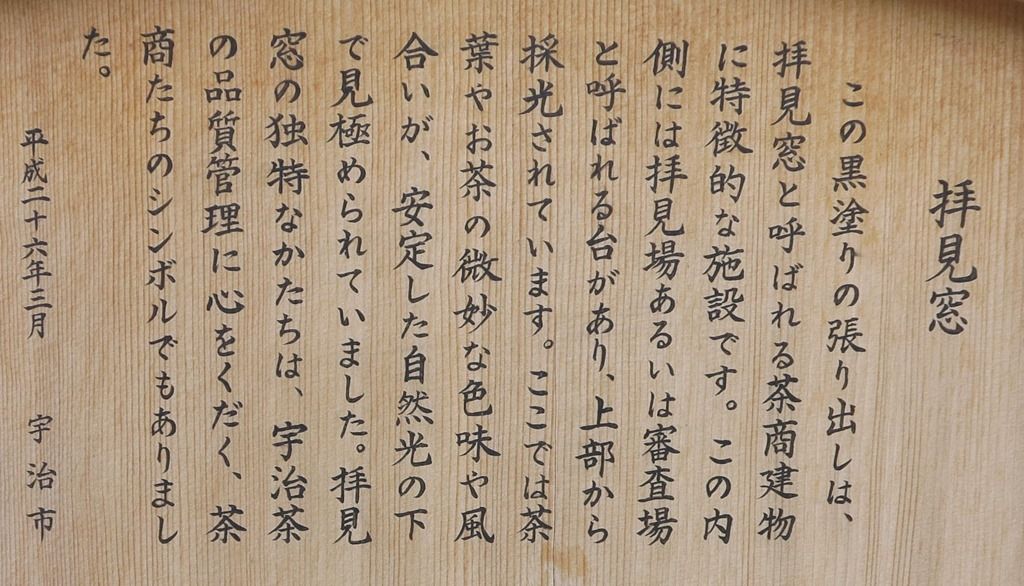 拝見窓
この黒塗りの張り出しは、
拝見窓と呼ばれる茶商建物
に特徴的な施設です。この内
側には拝見場あるいは審査場
と呼ばれる台があり、上部から
採光されています。ここでは茶
葉やお茶の微妙な色味や風
合いが、安定した自然光の下
で見極められていました。拝見
窓の独特なかたちは、宇治茶
の品質管理に心をくだく、茶
商たちのシンボルでもありまし
た。
平成二十六年三月 宇治市